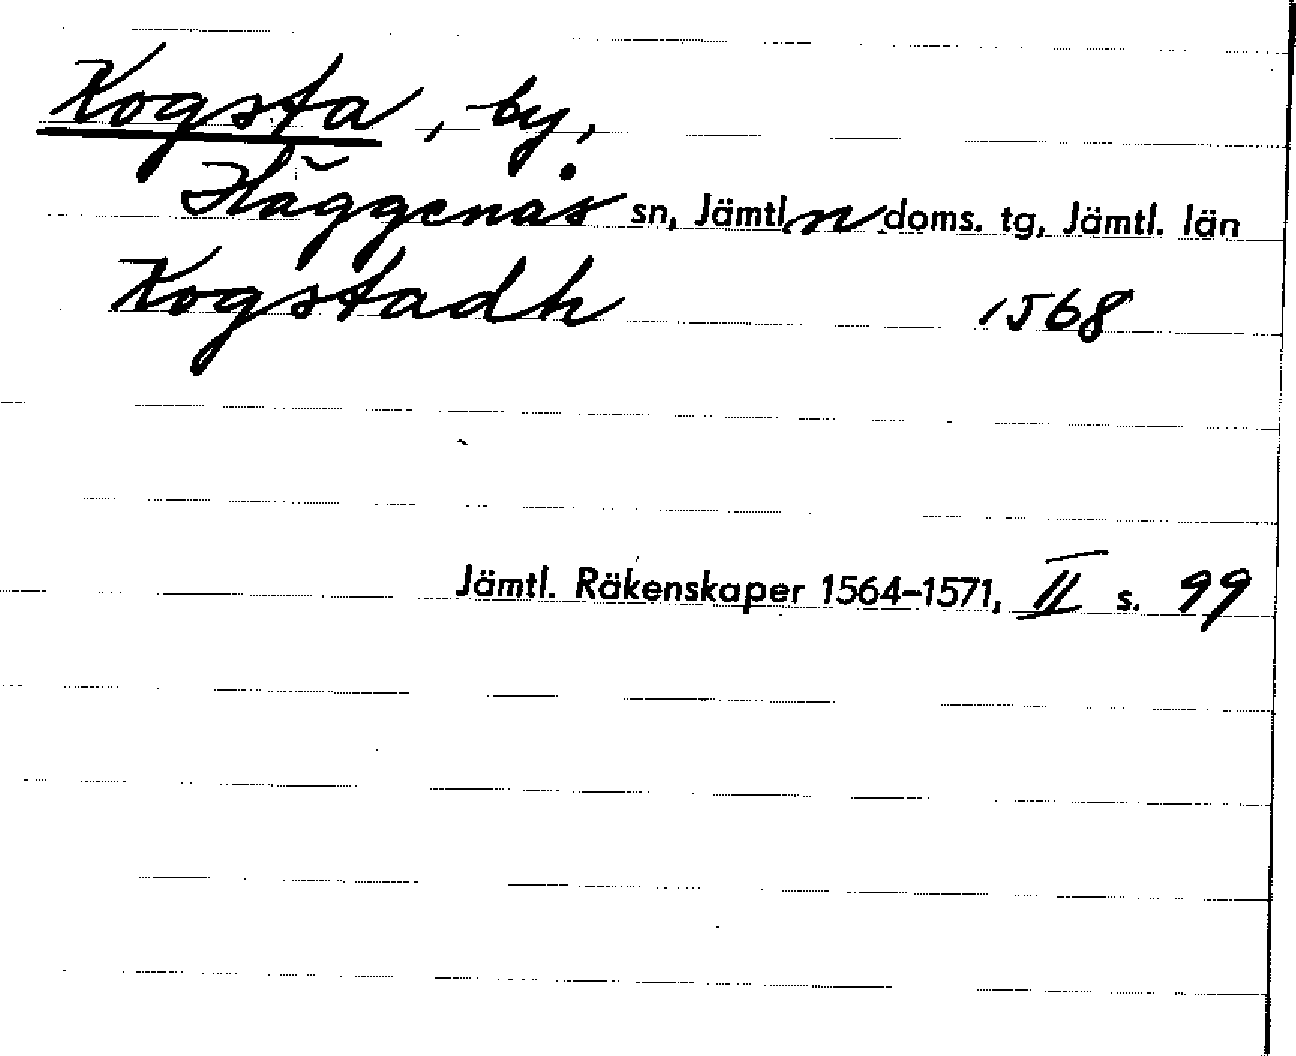 Kogsta, by,
Häggenås sn, Jämtl. n doms. tg, Jämtl. län
Kogstadh 1568
Jämtl. Räkenskaper 1564–1571, II s. 99